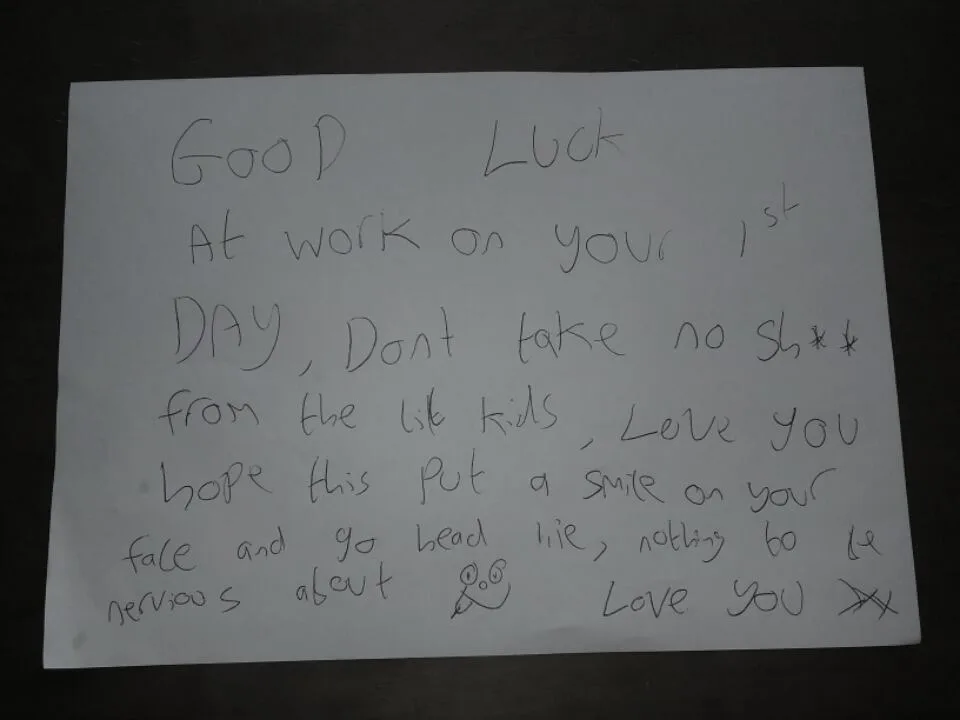 GOOD LUCK
At work on your 1st
DAY, Dont take no sh**
from the lit kids, Love you
hope this put a smile on your
face and go head , nothing to be
nervious about
Love you xx